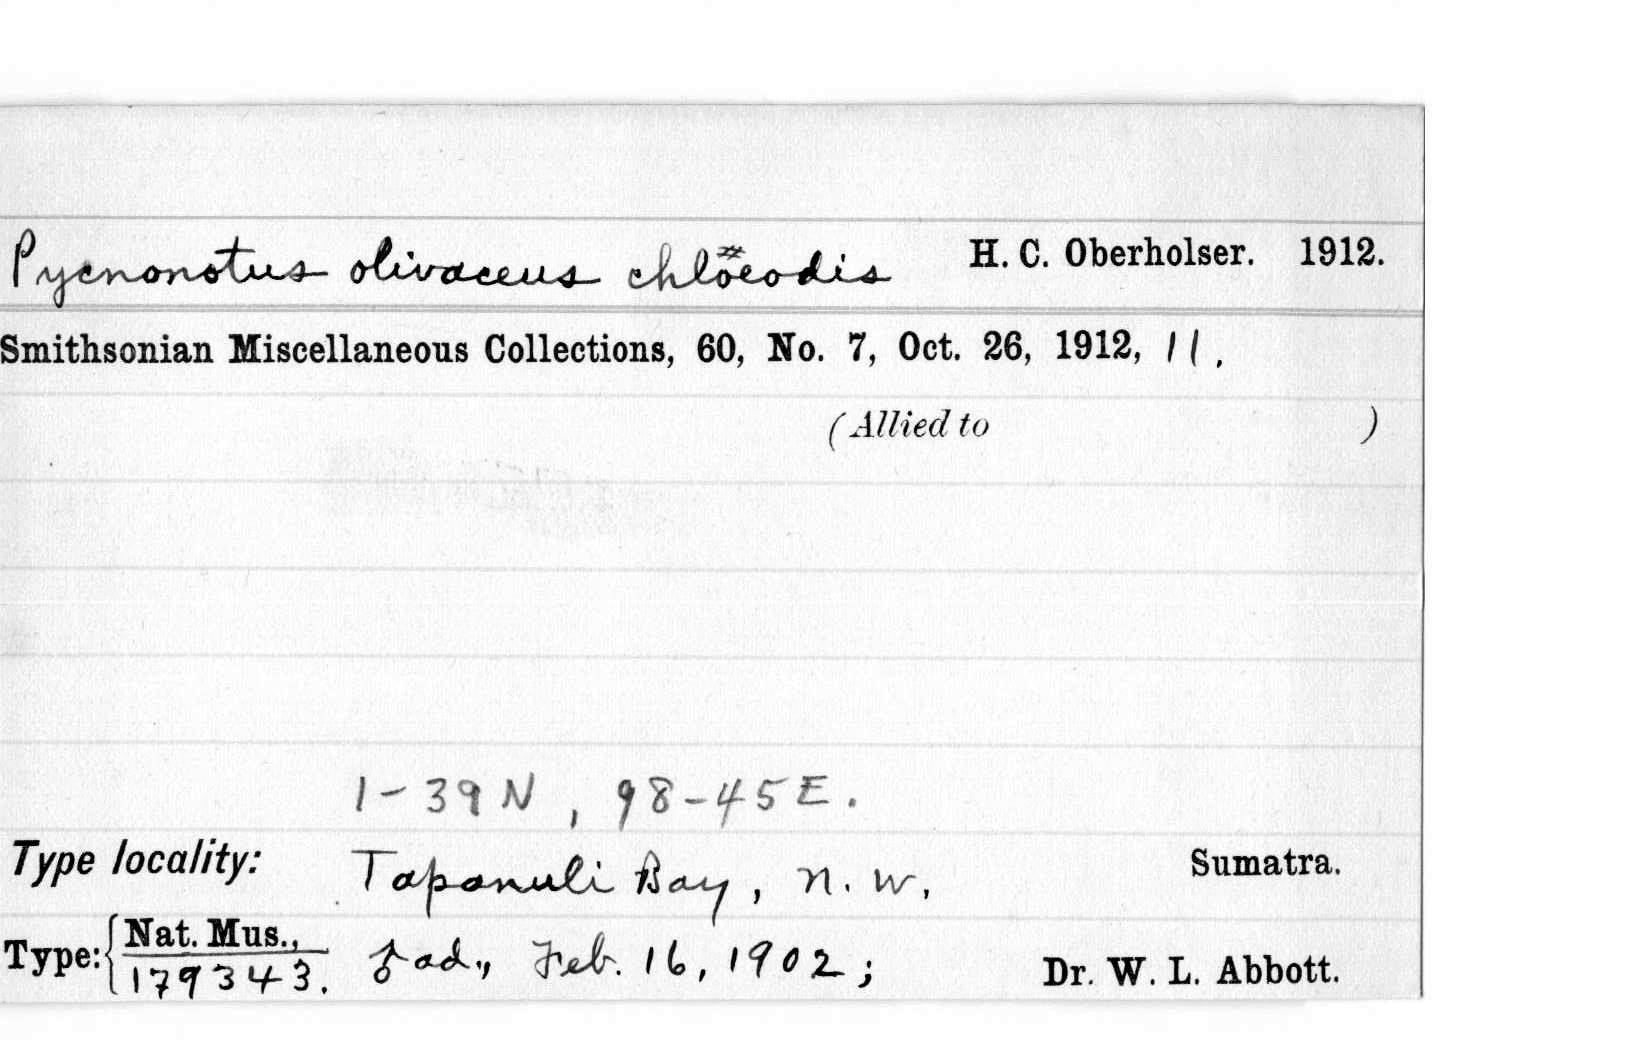 Pycnonotus olivaceus chlöeodis H. C. Oberholser. 1912.
Smithsonian Miscellaneous Collections, 60, No. 7, Oct. 26, 1912, 11.
(Allied to )
1-39N, 98-45E.
Type locality: Tapanuli Bay, N.W. Sumatra.
Type: { Nat. Mus., 179343. ♂ ad., Feb. 16, 1902; Dr. W. L. Abbott.